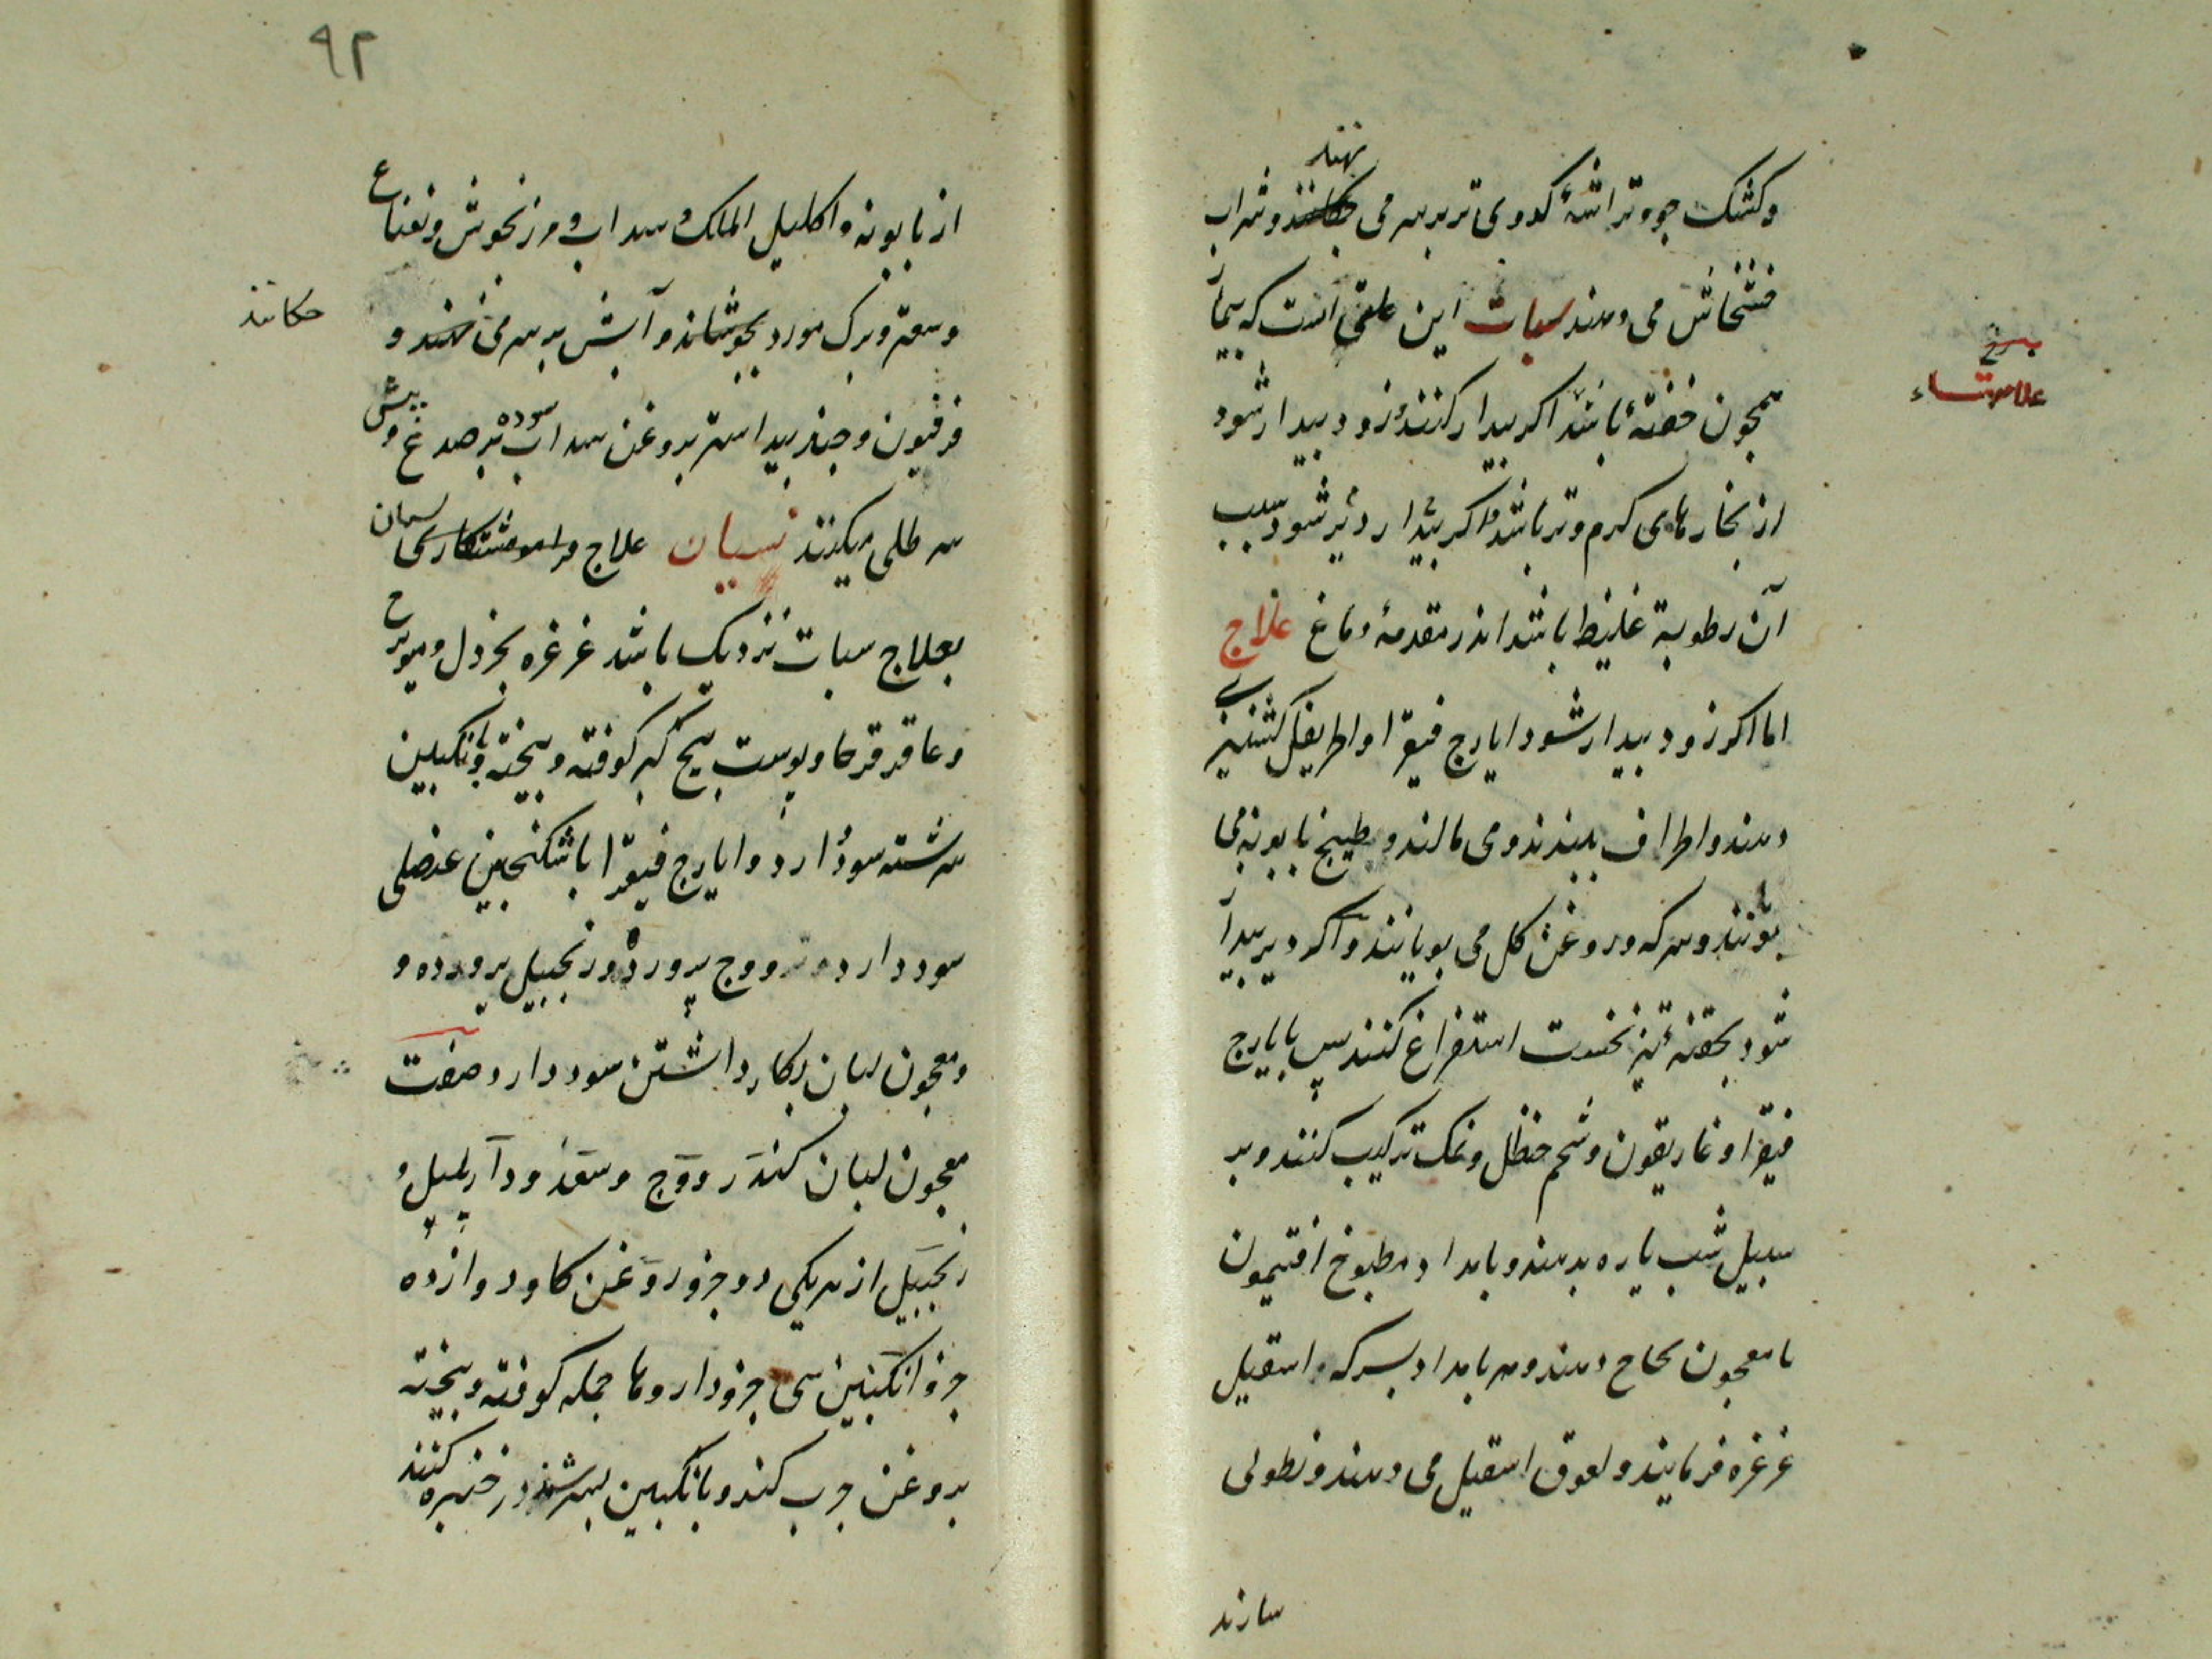 نهند
وکشک جو و تراشهٔ کدوی تر بر سر می چکانند و شراب
خشخاش می دهند سبات این علتی است که بیمار
همچون خفتهٔ باشد اکر بیدار کنند زود بیدار شود
از بخارهای کرم و تر باشد و اکر بیدار دیر شود سبب
آن رطوبة غلیظ باشد اندر مقدمهٔ دماغ علاج
اما اکر زود بیدار شود ایارج فیقرا و اطریفل کشنیزی
دهند و اطراف ببندند و می مالند و طبیخ بابونه می
بویانند و سرکه و روغن کل می بویانند و اکر دیر بیدار
شود بحقنه تیز نخست استفراغ کنند پس بایارج
فیقرا و غاریقون و شحم حنظل و نمک ترکیب کنند و بر
سبیل شب یاره بدهند و بامداد مطبوخ افتیمون
با معجون نجاح دهند و هر بامداد بسرکه اسقیل
غرغره فرمایند و لعوق اسقیل می دهند و نطولی
سازند
۹۲
از بابونه و اکلیل الملک و سداب و مرزنجوش و نعناع
و سعتر و برک مورد بجوشانند و آبش بر سر می نهند و
چکانند
فرفیون و جندبیداستر بروغن سداب سوده بر صدغ و پیش
سر طلی میکنند نسیان علاج فراموشتکاری نسیان
بعلاج سبات نزدیک باشد غرغره بخردل و میویزج
و عاقرقرحا و پوست بیخ کبر کوفته و بیخته و بانکبین
سرشته سود دارد و ایارج فیقرا با سکنجبین عنصلی
سود دارد و وج پرورده و زنجبیل پرورده و
و معجون لبان بکار داشتن سود دارد صفت
معجون لبان کندر و وج و سعد و دارپلپل و
زنجبیل از هر یکی دو جزو روغن کاو دوازده
جزو انکبین سی جزو داروها جمله کوفته و بیخته
بروغن چرب کند و بانکبین بسرشند در خنبره کنند